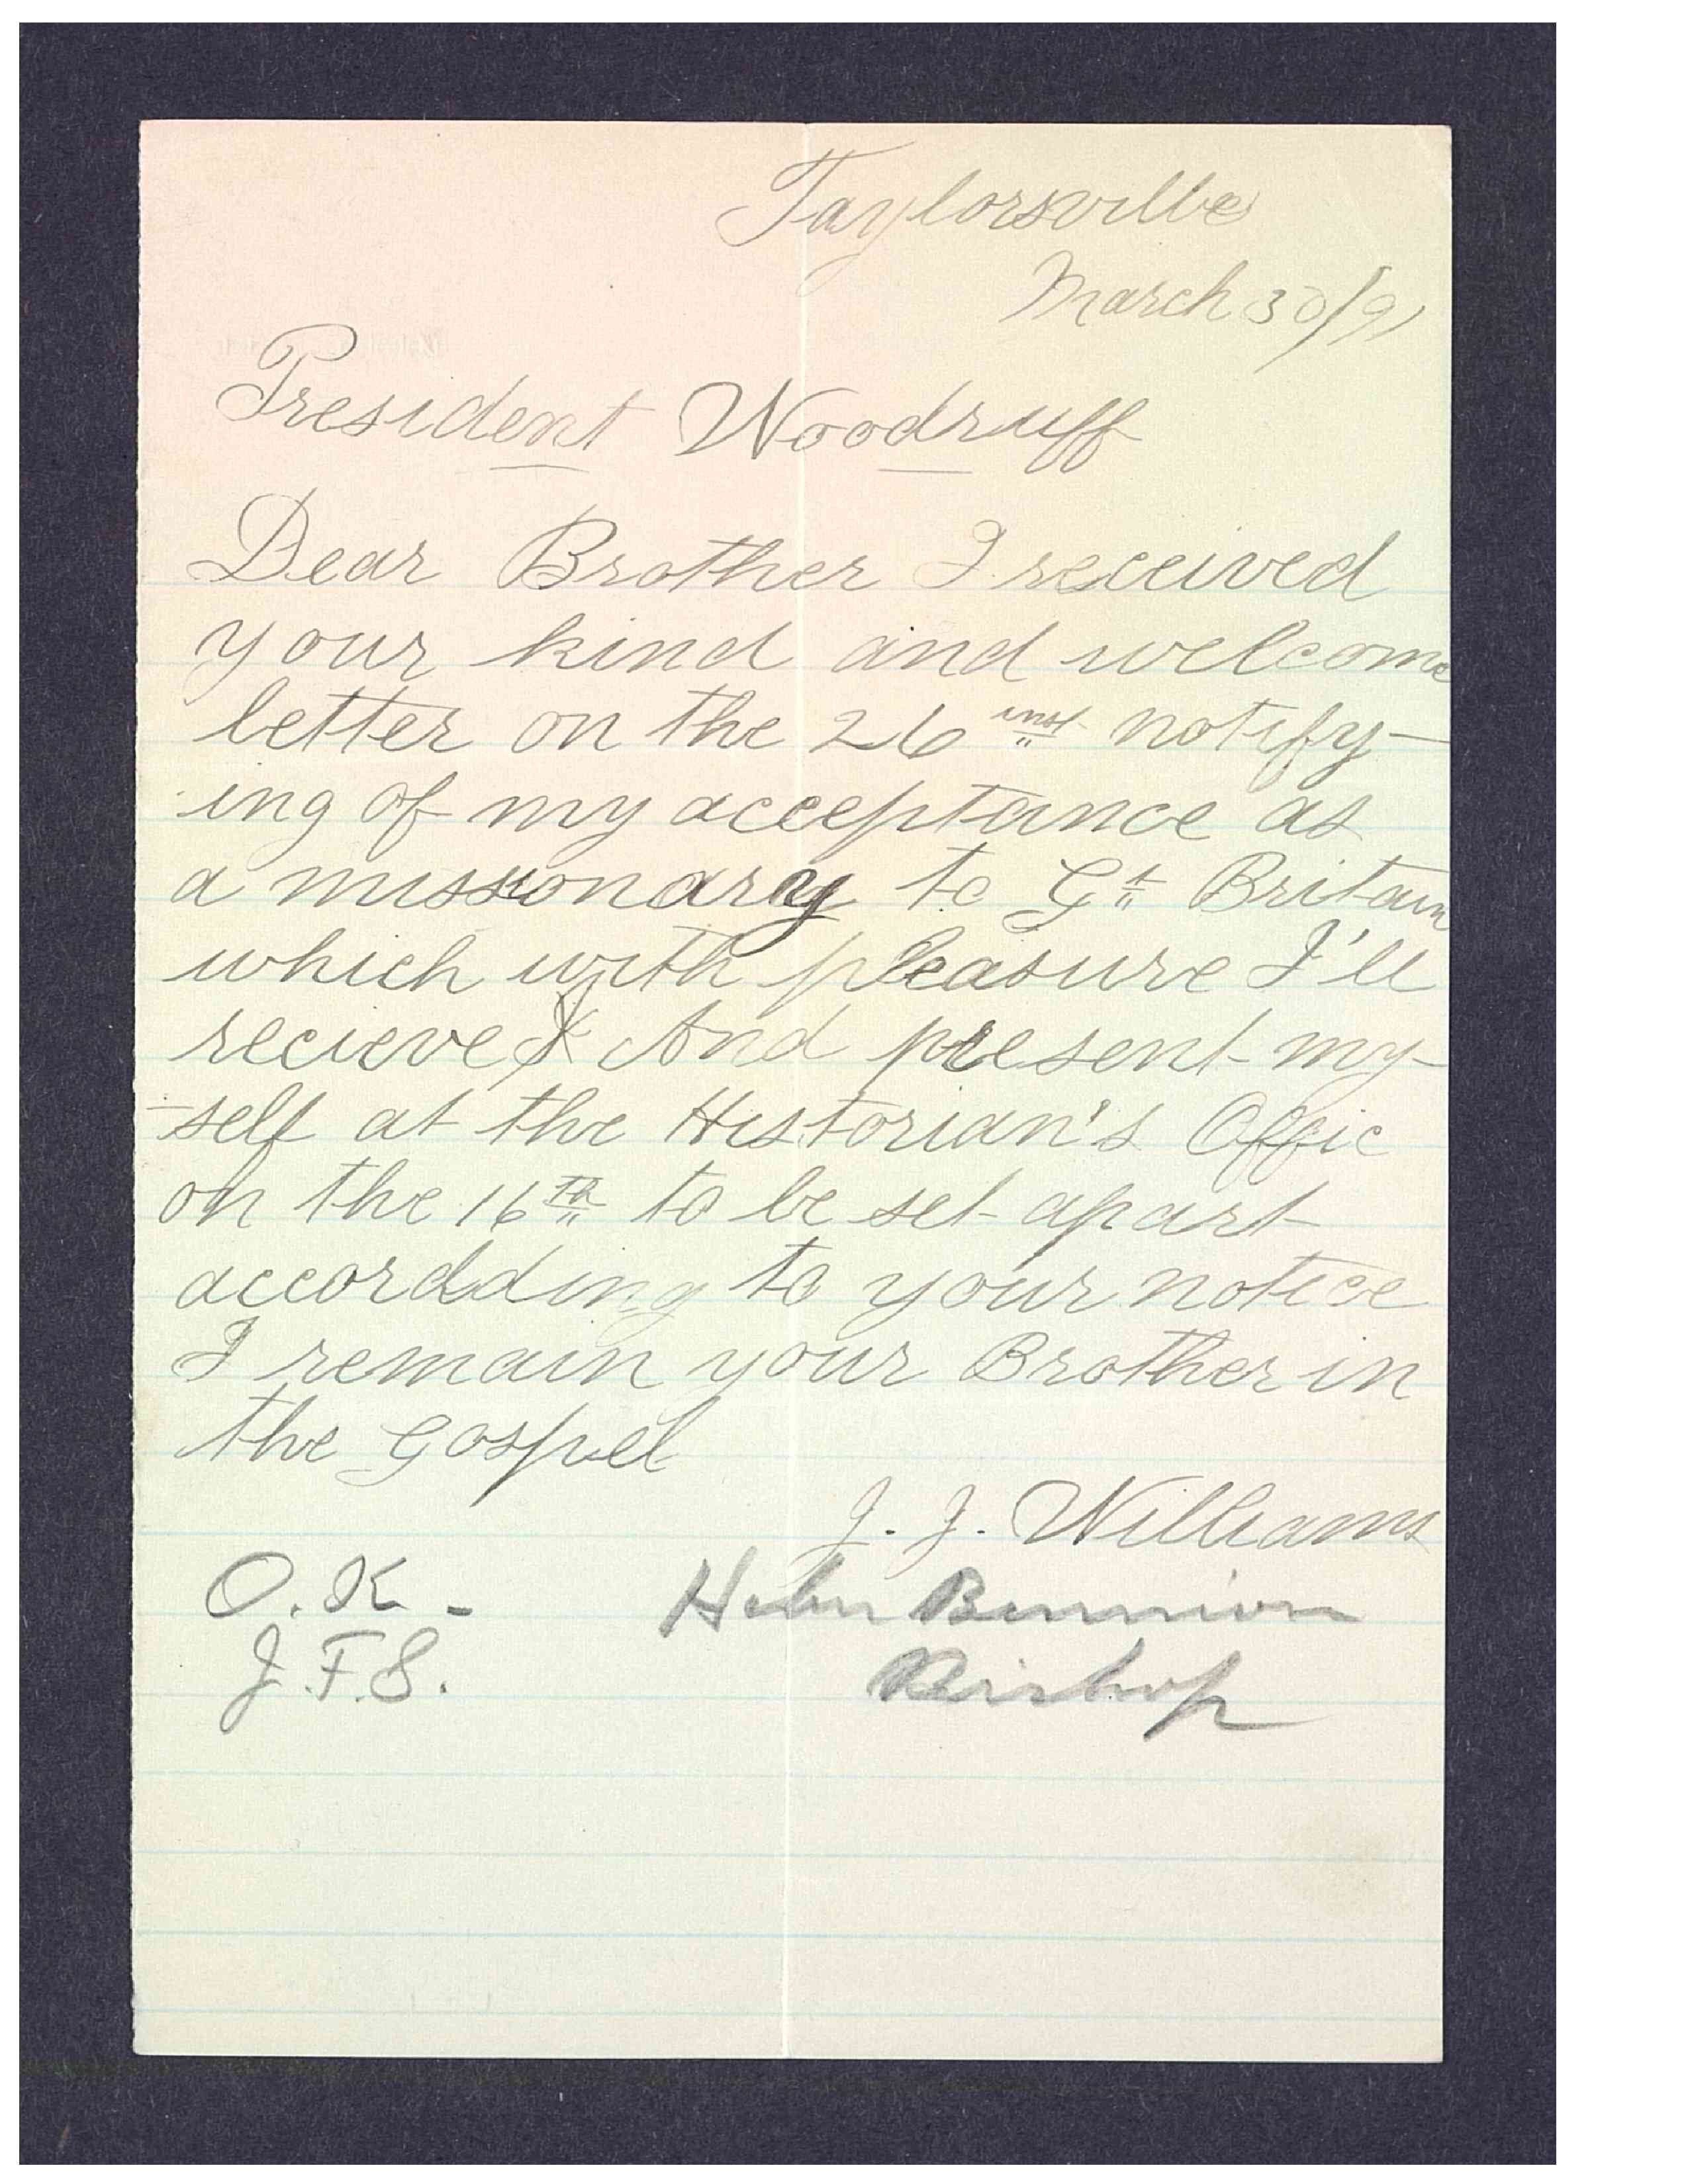 Taylorsville
March 30/91
President Woodruff
Dear Brother I received
your kind and welcome
letter on the 26 inst notify-
ing of my acceptance as
a missionary to Gt Britain
which with pleasure I'll
recieve & And present my-
-self at the Historian's Offic
on the 16th to be set apart
accordding to your notice
I remain your Brother in
the Gospel
J. J. Williams
O. K. - Heber Bennion
J. F. S. Bishop